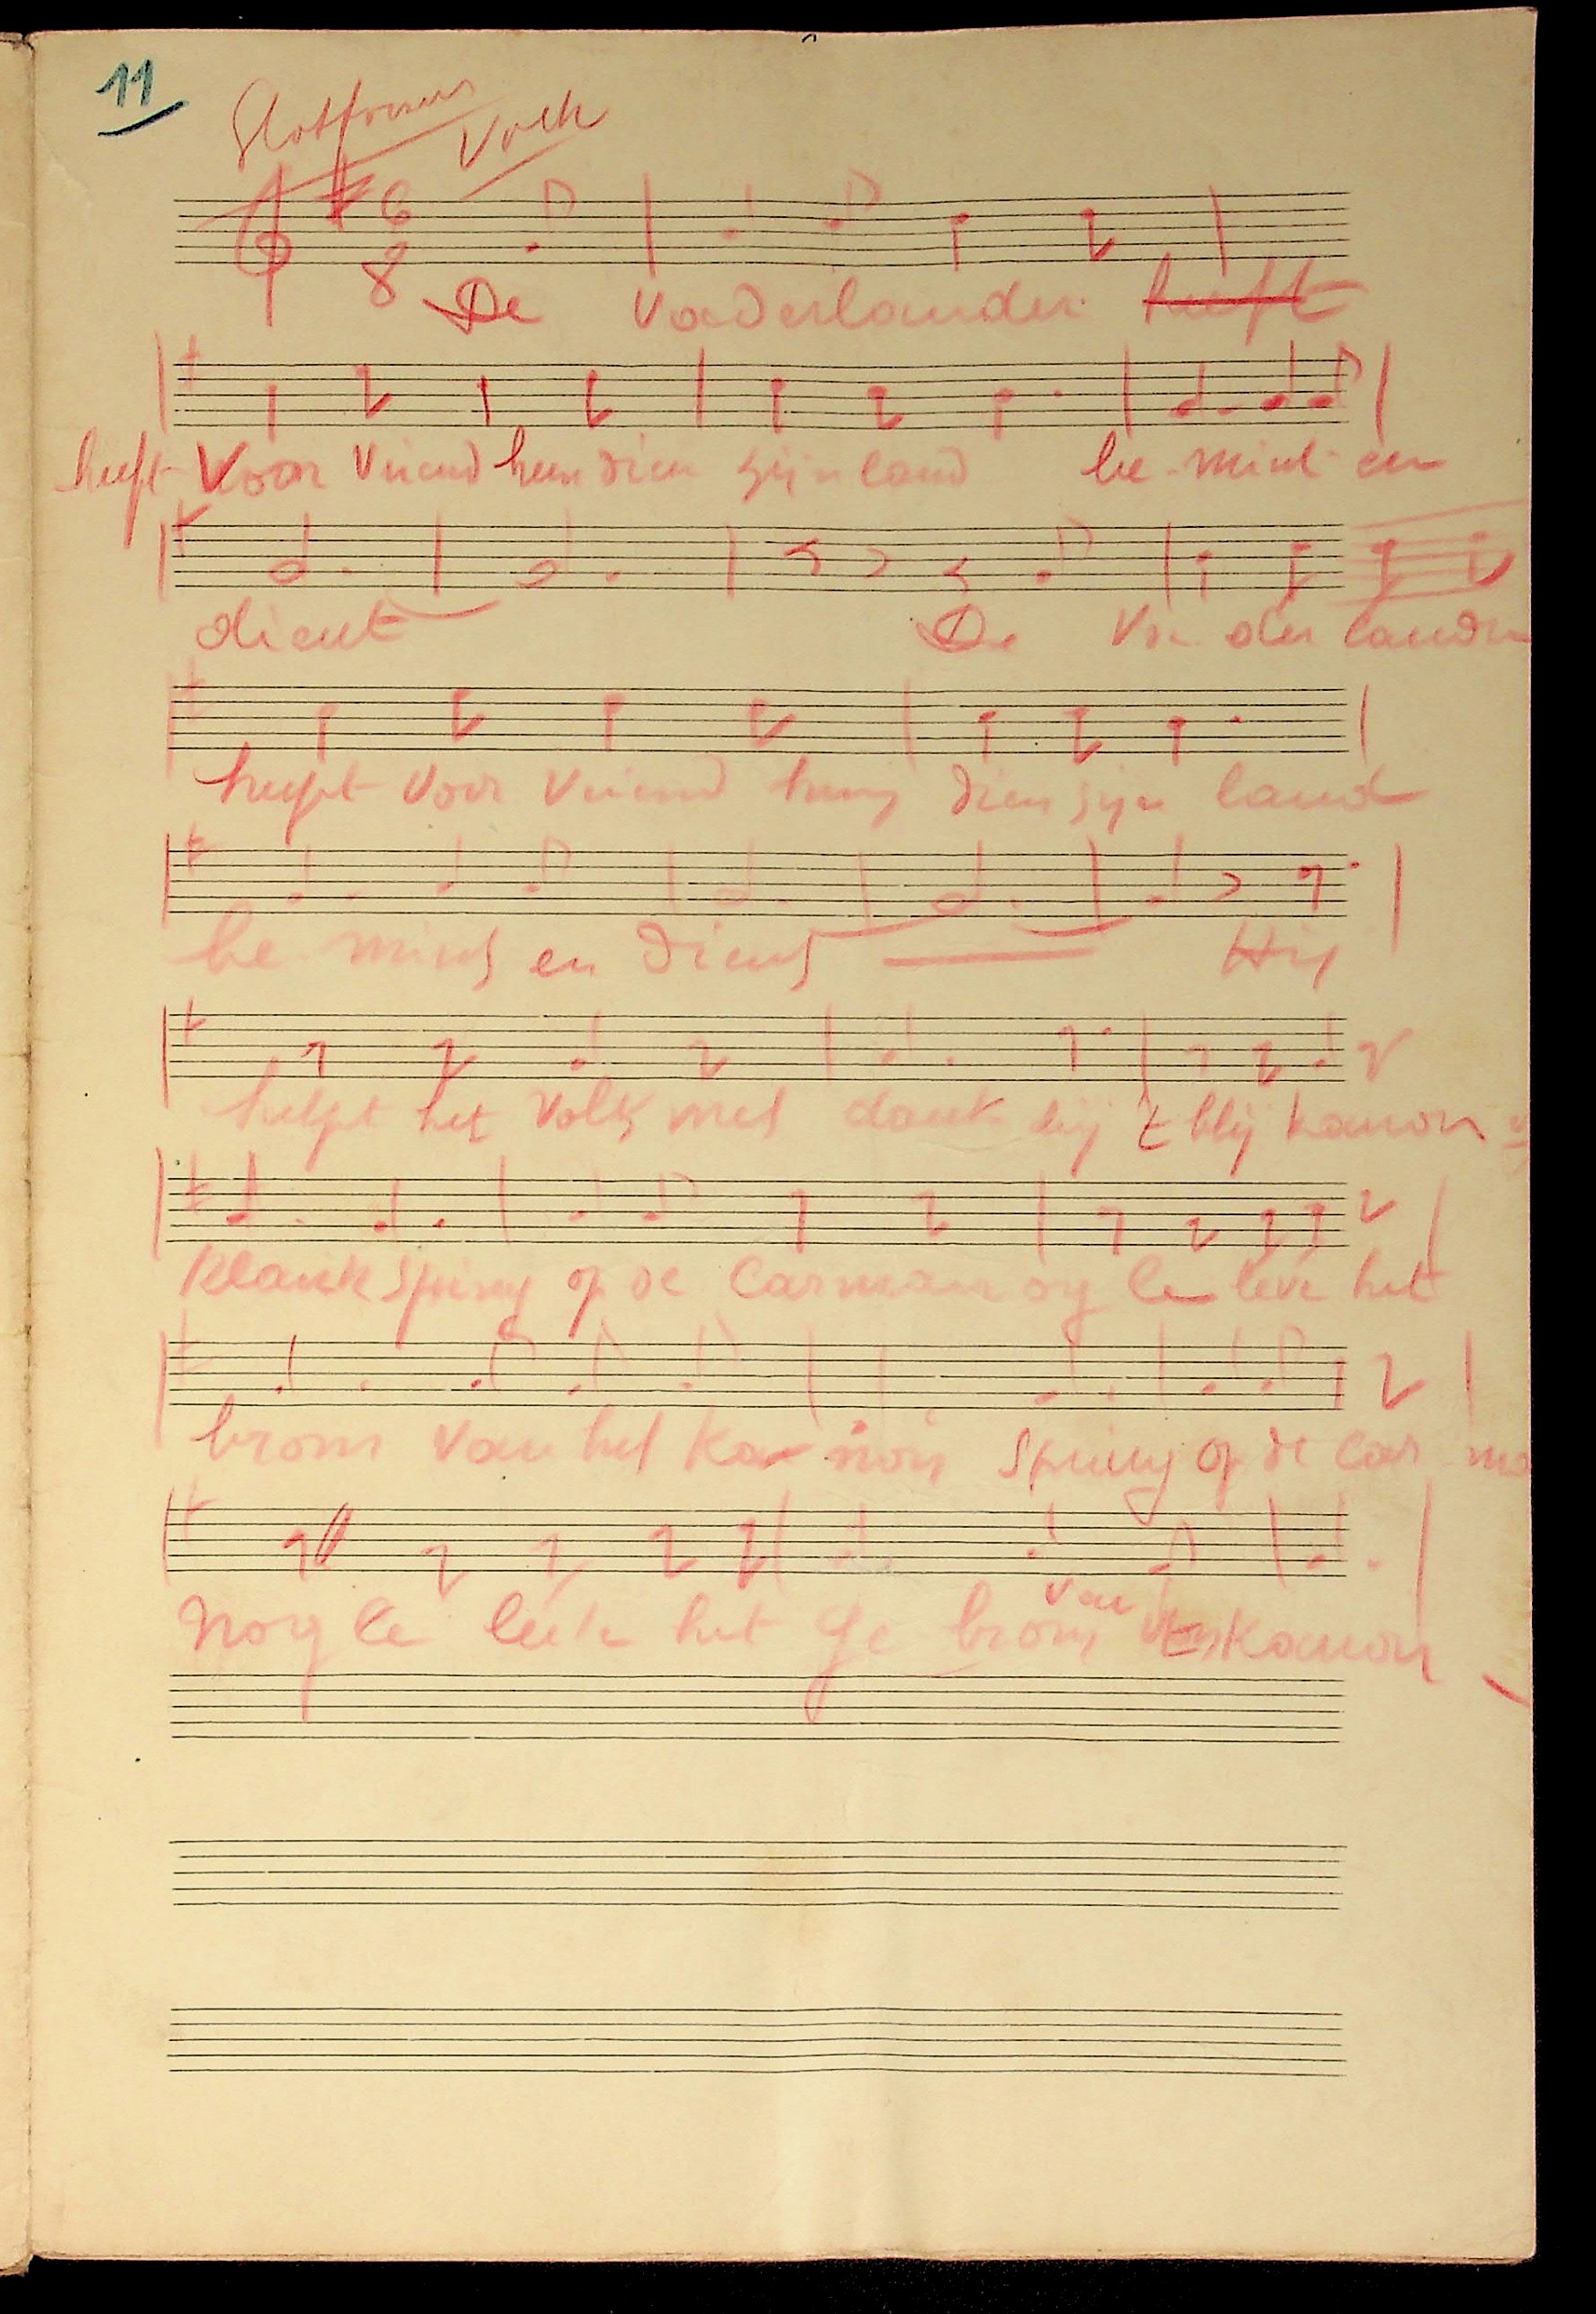 11
Volk
6
8 De Vaderlander heeft
heeft Voor Vriend hem dien zijn land be-mint en
dient De Va der lander
heeft Voor Vriend hem dien zijn land
be mint en dient Hij
helpt het Volk met dank bij t blij kanon
Klank Spring op de Carman og le leve het
brom van het Ka non Spring op de Car ma
nog le leve het Ge brom van t kanon